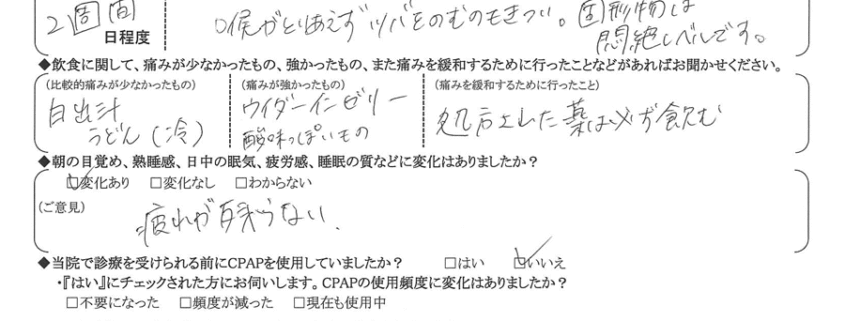 2週間
日程度
喉がとりあえずツバをのむのもきつい。固形物は
悶絶レベルです。
◆飲食に関して、痛みが少なかったもの、強かったもの、また痛みを緩和するために行ったことなどがあればお聞かせください。
(比較的痛みが少なかったもの) (痛みが強かったもの) (痛みを緩和するために行ったこと)
白出汁 ウイダーインゼリー 処方された薬は必ず飲む
うどん(冷) 酸味っぽいもの
◆朝の目覚め、熟睡感、日中の眠気、疲労感、睡眠の質などに変化はありましたか?
☑変化あり □変化なし □わからない
(ご意見)
疲れが残らない.
◆当院で診療を受けられる前にCPAPを使用していましたか? □はい ☑いいえ
・『はい』にチェックされた方にお伺いします。CPAPの使用頻度に変化はありましたか?
□不要になった □頻度が減った □現在も使用中